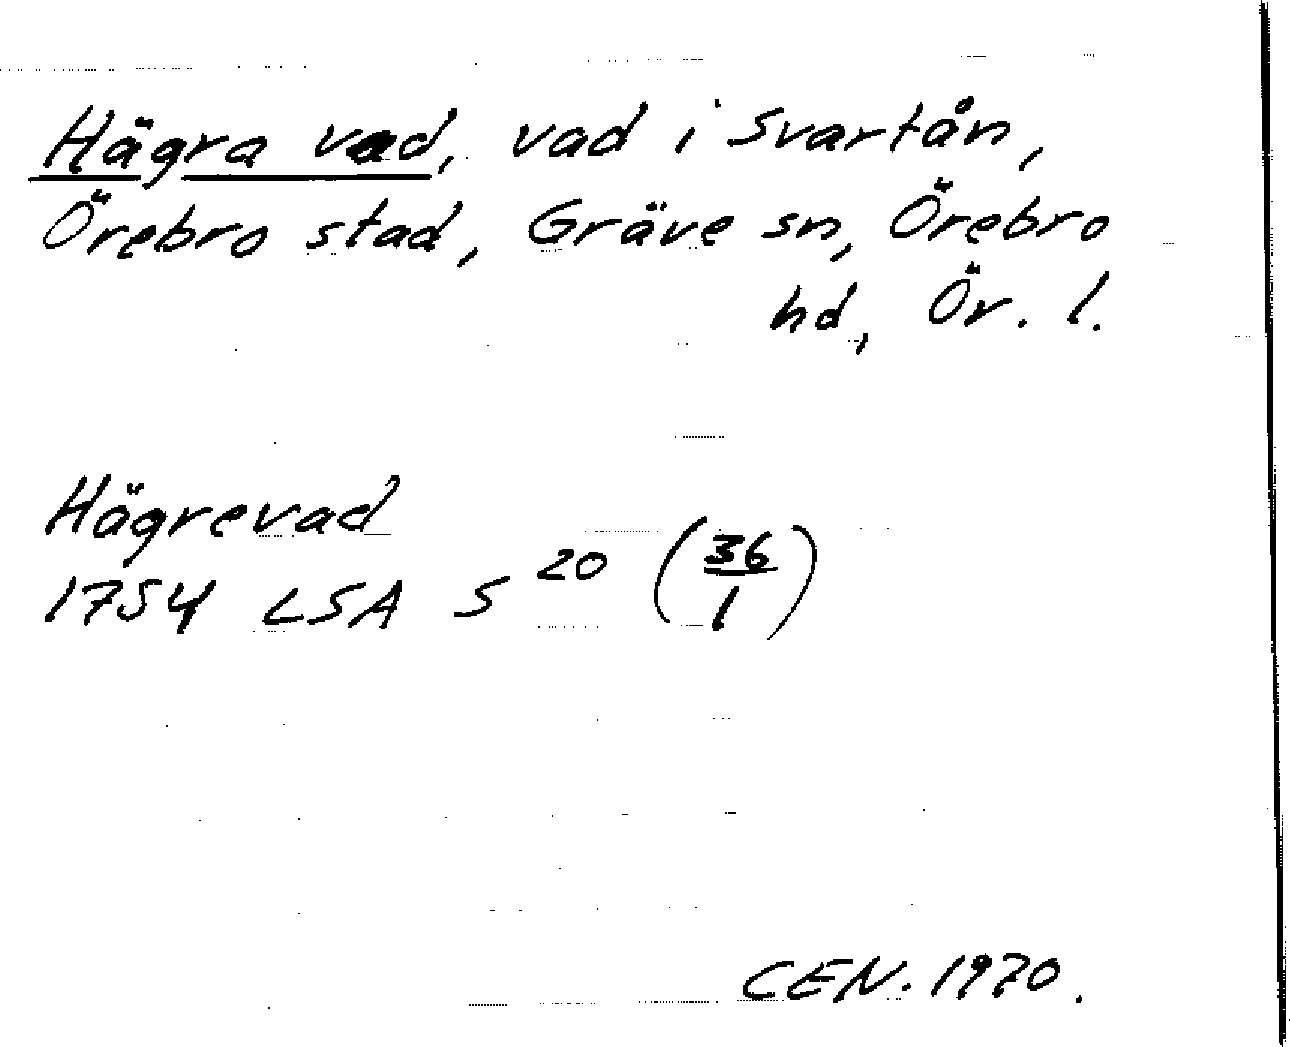 Hägra vad, vad i Svartån,
Örebro stad, Gräve sn, Örebro
hd, Ör. l.
Hägrevad
1754 LSA S 20 (36/1)
CEN. 1970.